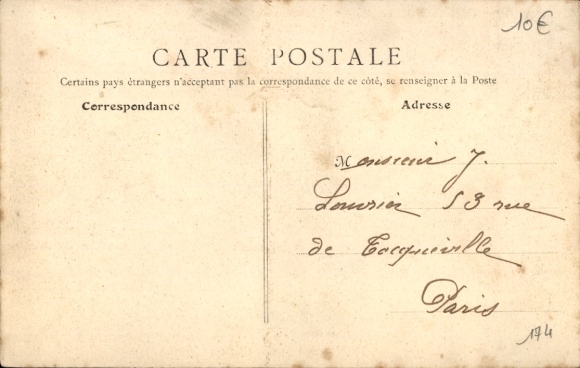 10€
CARTE POSTALE
Certains pays étrangers n'acceptant pas la correspondance de ce côté, se renseigner à la Poste
Correspondance
Adresse
Monsieur J.
Louvrier 53 rue
de Tocqueville
Paris
174